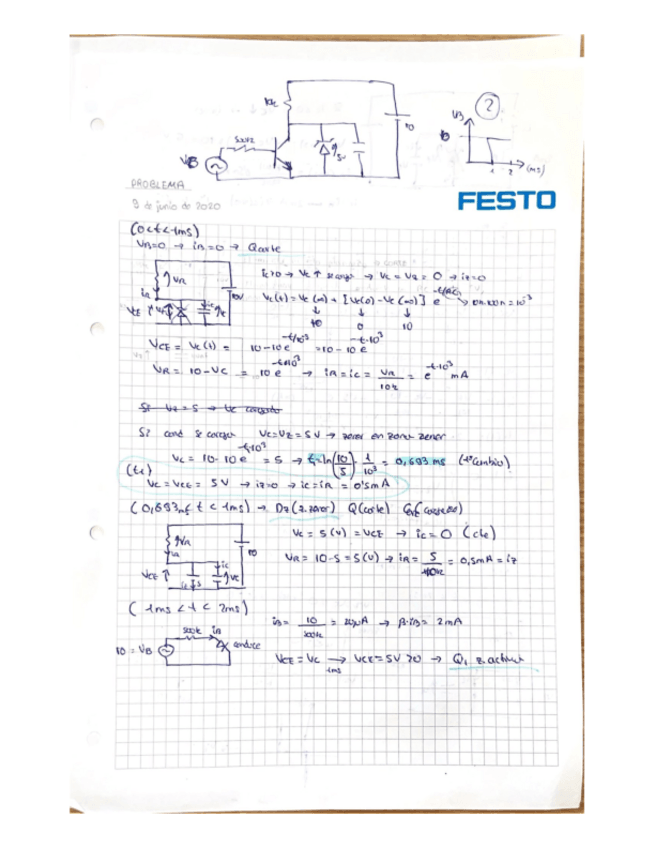 2
10k
500k
VB
5V
10
VB
10
1 2 (ms)
PROBLEMA
9 de junio de 2020
FESTO
(0<t<1ms)
VB=0 → iB=0 → Q corte
VR
iR
10V
VCE
ic>0 → Vc ↑ se carga → Vc = Vz = 0 → iz=0
Vc(t) = Vc(∞) + [Vc(0) - Vc(∞)] e^-t/RC
10 0 10
VCE = Vc(t) = 10-10e^-t/10^-3 = 10-10e^-t·10^3
VR = 10-Vc = 10e^-t·10^3 → iR = ic = VR/10k = e^-t·10^3 mA
Si Vz = 5 → Vc
Si cond se carga Vc=Vz=5V → zener en zona zener
Vc = 10-10e^-t·10^3 = 5 → t1=ln(10/5)·1/10^3 = 0,693 ms (1º Cambio)
(t1)
Vc = VCE = 5V → iz=0 → ic=iR = 0'5mA
(0,693ms < t < 1ms) → Dz (z.zener) Q(corte)
VR
iR
10
VCE
5
ic
Vc
Vc = 5(V) = VCE → ic=0 (cte)
VR = 10-5 = 5(V) → iR = 5/10k = 0,5mA = iz
(1ms < t < 2ms)
10 = VB
500k
iB
conduce
iB = 10/500k = 20μA → β·iB = 2mA
VCE = Vc → VCE = 5V >0 → Q1 z. activa
1ms